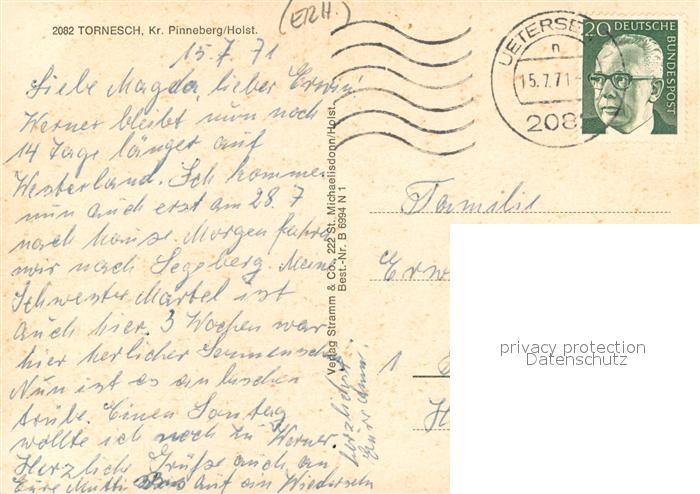 (ERH.)
2082 TORNESCH, Kr. Pinneberg/Holst.
15.7.71
Liebe Magda, lieber Erwin
Werner bleibt nun noch
14 Tage länger auf
Westerland. Ich komme
nun auch erst am 28.7
nach hause. Morgen fahren
wir nach Segeberg. Meine
Schwester Martel ist
auch hier. 3 Wochen war
hier herlicher Sonnensch
Nun ist es ein bischen
trübe. Einen Sonntag
wollte ich noch zu Werner.
Herzliche Grüße auch an
Eure Mutti Auf ein Wiedersehn
herzlichst
Eure
Verlag Stramm & Co., 222 St. Michaelisdonn/Holst.
Best.-Nr. B 6994 N 1
UETERSEN
n
15.7.71
2082
20 DEUTSCHE
BUNDESPOST
Familie
Erw
1
H
privacy protection
Datenschutz